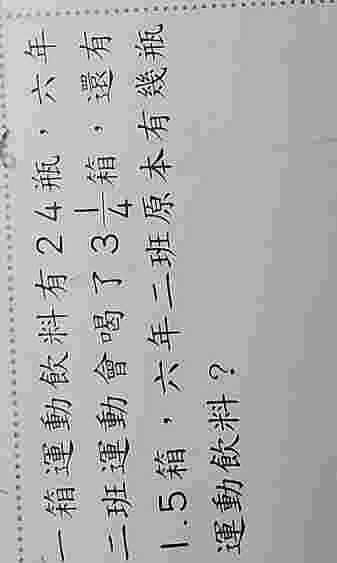 一箱運動飲料有24瓶，六年
二班運動會喝了3 1/4箱，還有
1.5箱，六年二班原本有幾瓶
運動飲料？